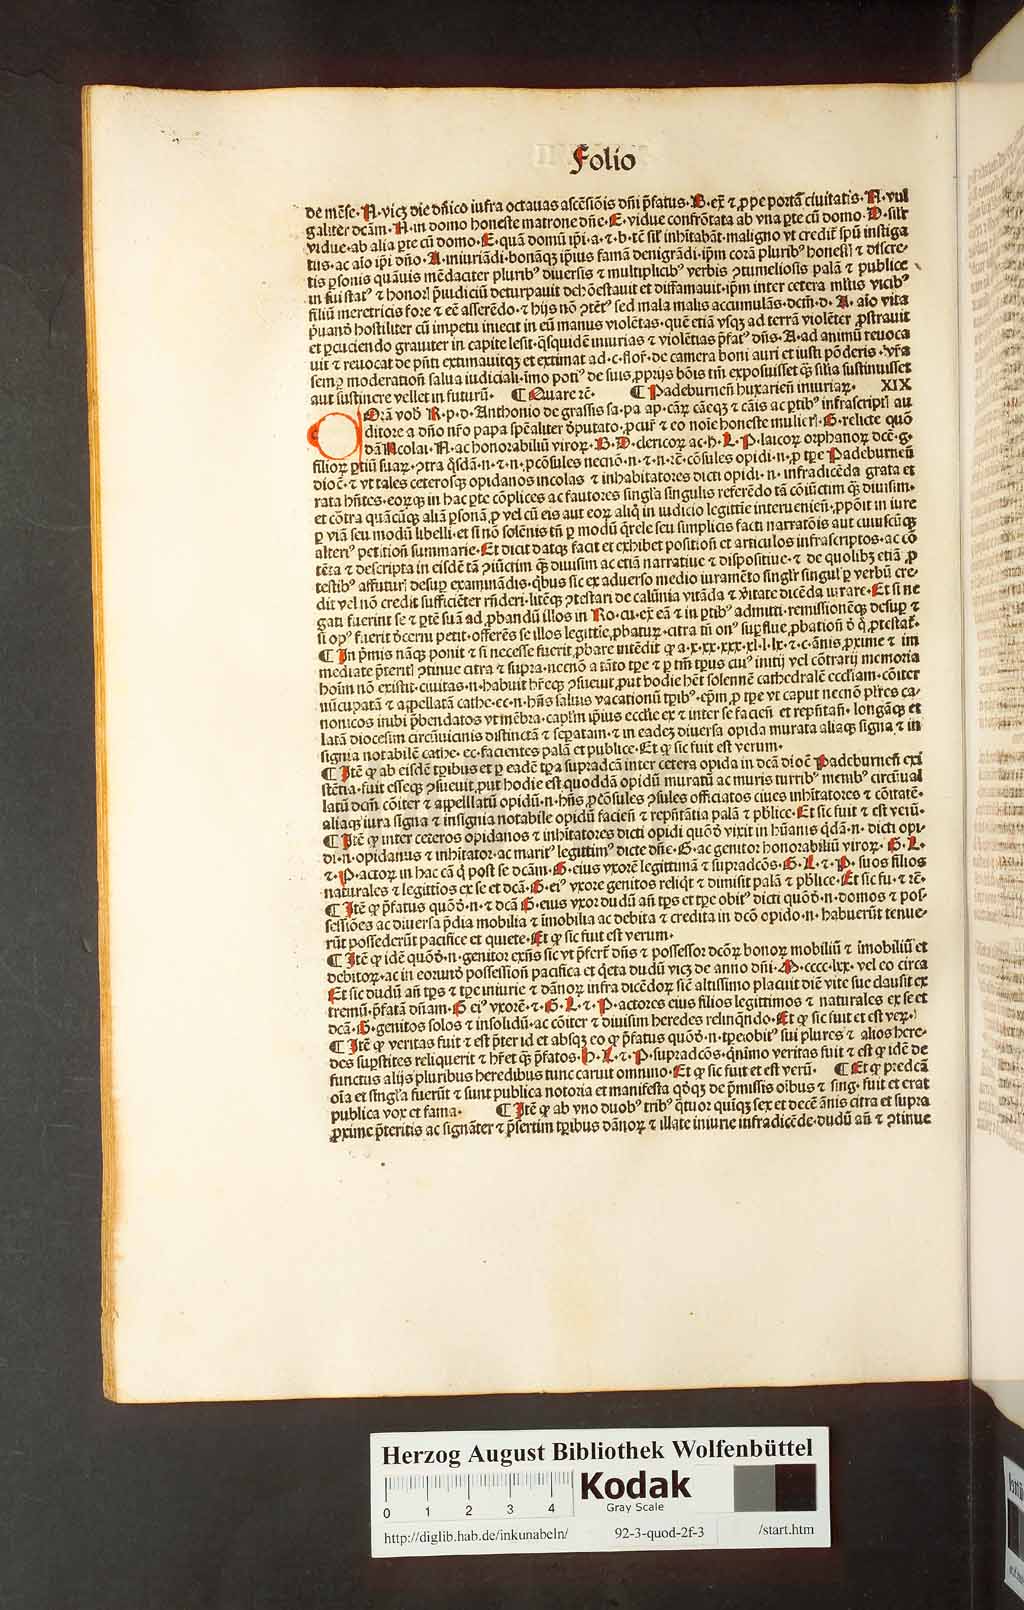 Folio
de mēse· N· vicꝫ die dñico infra octauas ascēsiōis dñi p̄fatus· B· ex̄ ⁊ ꝓpe portā ciuitatis· N· vul
galiter dcām· N· in domo honeste matrone dñe· E· vidue confrōtata ab vna ꝑte cū domo· D· silr̄
vidue· ab alia ꝑte cū domo· E· quā domū ip̄i· a· ⁊ b· tē sil̄ inhītabāt· maligno vt credit̄ spū instiga
tus· ac aīo ip̄i dño· A· iniuriādi· bonāqꝫ ip̄ius famā denigrādi· ip̄m corā pluribꝰ honest᷒ ⁊ discre-
tis ꝑsonis quāuis mēdaciter pluribꝰ diuersis ⁊ multiplicibꝰ verbis ꝯtumeliosis palā ⁊ publice
in sui statꝰ ⁊ honor᷒ p̄iudiciū deturpauit dehōestauit et diffamauit· ip̄m inter cetera mltis vicibꝰ
filiū meretricis fore ⁊ eē asserēdo· ⁊ hijs nō ꝯtētꝰ sed mala malis accumulās· dcm̄· d· A· aīo vita
p̄uandi hostiliter cū impetu iniecit in eū manus violētas· quē etiā vsqꝫ ad terrā violēter ꝓstrauit
et ꝑcuciendo grauiter in capite lesit· q̄squidē iniurias ⁊ violētias p̄fatꝰ dñs· A· ad animū reuoca
uit ⁊ reuocat de pn̄ti extimauitqꝫ et extimat ad· c· flor̄· de camera boni auri et iusti pōderis· vr̄a
semꝑ moderation̄ salua iudiciali· īmo potiꝰ de suis ꝓprijs bōis tm̄ exposuisset qꝫ silia sustinuisset
aut sustinere vellet in futurū· ¶ Quare rē· ¶ Padeburneñ huxarieñ iniuriaꝝ· XIX
COrā vob᷒ R· p· d· Anthonio de grassis sa· pa ap· cāꝝ cāeqꝫ ⁊ cāis ac ꝑtibꝰ infrascript᷒ au
ditore a dño nr̄o papa spēaliter d̄putato ꝓcur̄ ⁊ eo noīe honeste mulier᷒· G· relicte quō
dā Nicolai· N· ac honorabiliū viroꝝ· B· D· clericoꝝ ac· h· L· P· laicoꝝ orphanoꝝ dcē· g·
filioꝝ ꝑtiū suaꝝ· ꝯtra q̄sdā· n· ⁊ n· ꝓcōsules necnō· n· ⁊ n· rē· cōsules opidi· n· ꝓ tꝑe Padeburneñ
dioc̄· ⁊ vt tales ceterosqꝫ opidanos incolas ⁊ inhabitatores dicti opidi· n· infradicēda grata et
rata hñtes· eorūqꝫ in hac ꝑte cōplices ac fautores singl̄a singulis referēdo tā cōiūctim qꝫ diuisim·
et cōtra quācūqꝫ aliā ꝑsonā ꝓ vel cū eis aut eoꝝ aliq̄ in iudicio legittie interuenien̄· ꝓpōit in iure
ꝑ viā seu modū libelli· et si nō solēnis tn̄ ꝑ modū q̄rele seu simplicis facti narratōis aut cuiuscūqꝫ
alteriꝰ petition̄ summarie· Et dicit datqꝫ facit et exhibet position̄ et articulos infrascriptos· ac cō
tēta ⁊ descripta in eisdē tā ꝯiūctim qꝫ diuisim ac etiā narratiue ⁊ dispositiue· ⁊ de quolibꝫ etiā ꝓ
testibꝰ affuturi desuꝑ examinādis· q̄bus sic ex aduerso medio iuramēto singlr̄ singul᷒ ꝑ verbū cre-
dit vel nō credit sufficiēter rn̄deri· litēqꝫ ꝯtestari de calūnia vitāda ⁊ v̄itate dicēda iurare· Et si ne
gati fuerint se ⁊ ꝑtē suā ad ꝓbandū illos in Ro· cu· ex eā ⁊ in ꝑtibꝰ admitti· remissionēqꝫ desuꝑ ⁊
si opꝰ fuerit d̄cerni petit· offerēs se illos legittie ꝓbatuꝝ· citra tn̄ onꝰ suꝑflue ꝓbation̄ d̄ q̄ ꝓtestat̄·
¶ In p̄mis nāqꝫ ponit ⁊ si necesse fuerit ꝓbare intēdit ꝙ a· x· xx· xxx· xl· l· lx· ⁊· c· ānis ꝓxime ⁊ im
mediate p̄terit᷒ ꝯtinue citra ⁊ supra· necnō a tāto tꝑe ⁊ ꝑ tm̄ tꝑus cuiꝰ initij vel cōtrarij memoria
hoīm nō existit· ciuitas· n· habuit hr̄eqꝫ ꝯsueuit ꝓut hodie hēt solennē cathedralē eccl̄iam· cōiter
nūcupatā ⁊ appellatā cathe· ec· n· hn̄s saltus vacationū tꝑibꝰ· ep̄m ꝓ tꝑe vt caput necnō plr̄es ca-
nonicos inibi p̄bendatos vt mēbra· capl̄m ip̄ius eccl̄ie ex ⁊ inter se facien̄ et rep̄ntan̄· longāqꝫ et
latā diocesim circūuicinis distinctā ⁊ seꝑatam· ⁊ in eadeꝫ diuersa opida murata aliaqꝫ signa ⁊ in
signia notabilē cathe· ec· facientes palā et publice· Et ꝙ sic fuit est verum·
¶ Itē ꝙ ab eisdē tꝑibus et ꝑ eadē tꝑa supradcā inter cetera opida in dcā dioc̄ Padeburneñ exi
stētia· fuit esseqꝫ ꝯsueuit ꝓut hodie est quoddā opidū muratū ac muris turribꝰ membꝰ circūual
latū dcm̄ cōiter ⁊ appelllatū opidū· n· hn̄s ꝓcōsules ꝯsules officiatos ciues inhītatores ⁊ cōitatē·
aliaqꝫ iura signa ⁊ insignia notabile opidū facien̄ ⁊ rep̄ntātia palā ⁊ pb̄lice· Et sic fuit ⁊ est verū·
¶ Itē ꝙ inter ceteros opidanos ⁊ inhītatores dicti opidi quōd̄ vixit in hūanis q̄dā· n· dicti opi-
di· n· opidanus ⁊ inhītator· ac maritꝰ legittimꝰ dicte dñe· G· ac genitor honorabiliū viroꝝ· G· L·
⁊· P· actoꝝ in hac cā q̄ post se dcām· G· eius vxorē legittimā ⁊ supradcōs· G· L· ⁊· P· suos filios
naturales ⁊ legittios ex se et dcā· G· eiꝰ vxore genitos reliq̄t ⁊ dimisit palā ⁊ pb̄lice· Et sic fu· ⁊ rē·
¶ Itē ꝙ p̄fatus quōd̄· n· ⁊ dcā G· eius vxor dudū an̄ tꝑs et tꝑe obitꝰ dicti quōd̄· n· domos ⁊ pos-
sessiōes ac diuersa p̄dia mobilia ⁊ īmobilia ac debita ⁊ credita in dcō opido· n· habuerūt tenue-
rūt possederūt pacifice et quiete· Et ꝙ sic fuit est verum·
¶ Itē ꝙ idē quōd̄· n· genitor exn̄s sic vt p̄fert̄ dñs ⁊ possessor dcōꝝ bonoꝝ mobiliū ⁊ īmobiliū et
debitoꝝ· ac in eorund̄ possession̄ pacifica et q̄eta dudū vicꝫ de anno dñi· M· cccc· lxx· vel eo circa
Et sic dudū an̄ tꝑs ⁊ tꝑe iniurie ⁊ dānoꝝ infra dicēdoꝝ sic̄ altissimo placuit diē vite sue clausit ex
tremū· p̄fatā dñam· G eiꝰ vxorē· ⁊· G· L· ⁊· P· actores eius filios legittimos ⁊ naturales ex se et
dcā· G· genitos solos ⁊ insolidū· ac cōiter ⁊ diuisim heredes relinq̄ndo· Et ꝙ sic fuit et est veꝝ·
¶ Itē ꝙ veritas fuit ⁊ est p̄ter id et absqꝫ eo ꝙ p̄fatus quōd̄· n· tꝑe obitꝰ sui plures ⁊ alios here-
des suꝑstites reliquerit ⁊ hr̄et qꝫ p̄fatos· h· L· ⁊· P· supradcōs· q̄nimo veritas fuit ⁊ est ꝙ idē de
functus alijs pluribus heredibus tunc caruit omnino· Et ꝙ sic fuit et est verū· ¶ Et ꝙ predcā
oīa et singl̄a fuerūt ⁊ sunt publica notoria et manifesta q̄ōqꝫ de p̄missis oībus ⁊ sing· fuit et erat
publica vox et fama· ¶ Itē ꝙ ab vno duobꝰ tribꝰ q̄tuor quiqꝫ sex et decē ānis citra et supra
ꝓxime p̄teritis ac signāter ⁊ p̄sertim tꝑibus dānoꝝ ⁊ illate iniurie infradicēde· dudū an̄ ⁊ ꝯtinue
Herzog August Bibliothek Wolfenbüttel
Kodak
Gray Scale
0 1 2 3 4
http://diglib.hab.de/inkunabeln/ 92-3-quod-2f-3 /start.htm